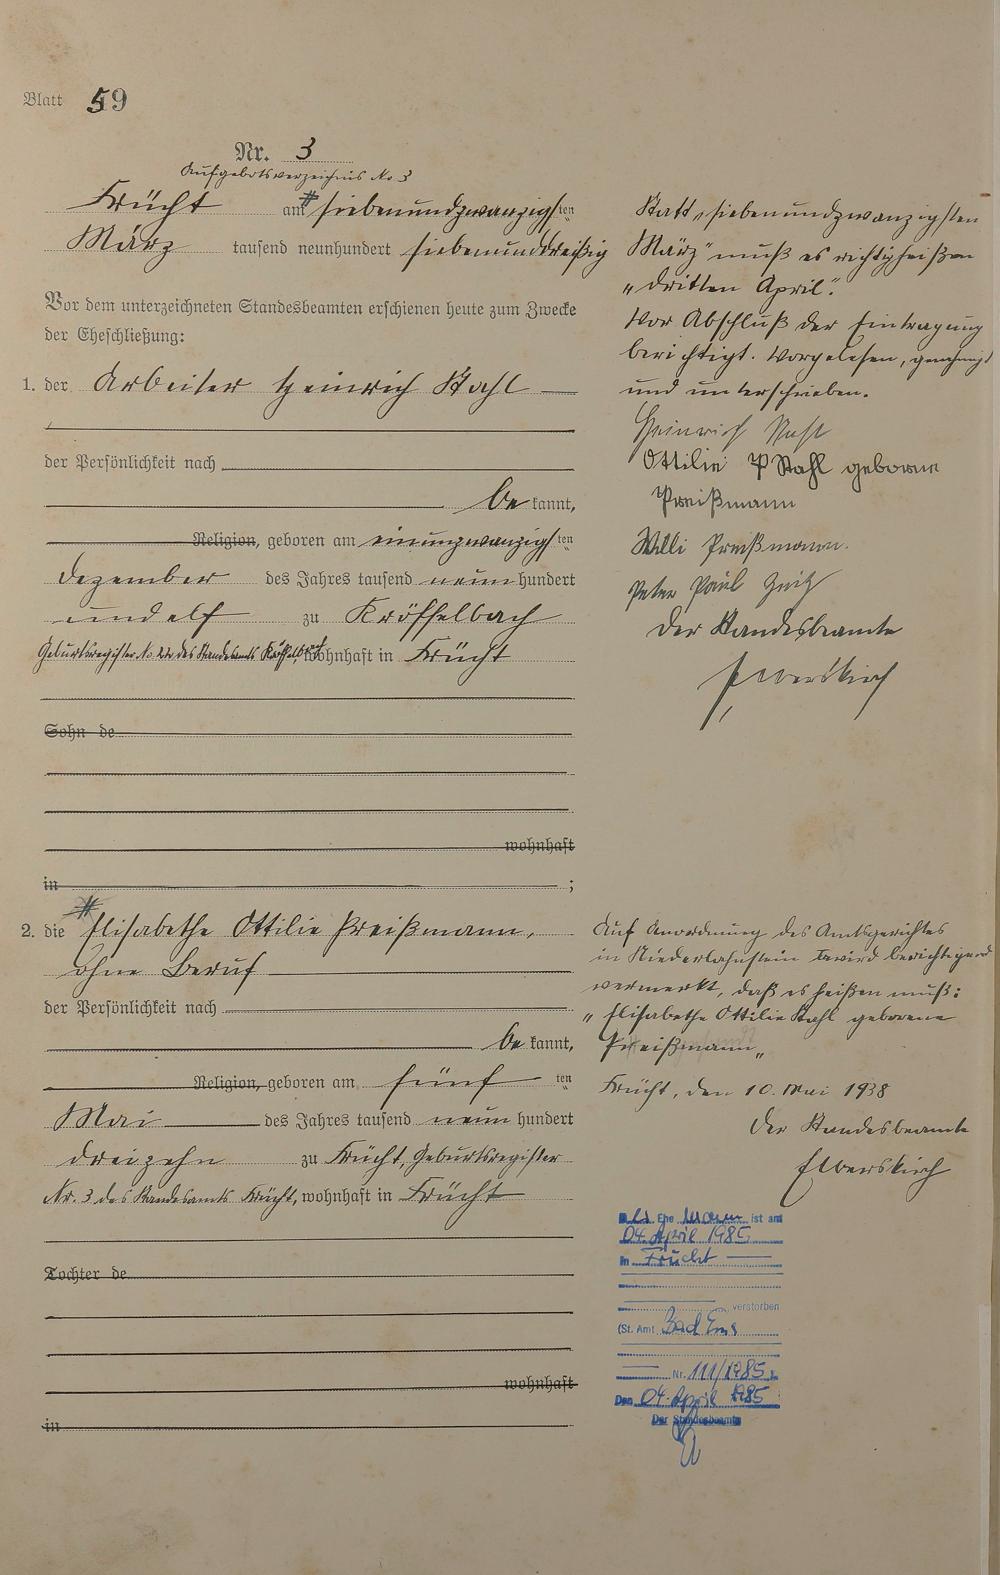 Blatt 59
Nr. 3
Aufgebotsverzeichnis No 3
Frücht am # siebenundzwanzigsten
März tausend neunhundert siebenunddreißig
Vor dem unterzeichneten Standesbeamten erschienen heute zum Zwecke
der Eheschließung:
1. der Arbeiter Heinrich Stahl
der Persönlichkeit nach
be kannt,
Religion, geboren am einundzwanzigsten
Dezember des Jahres tausend neun hundert
und elf zu Kröffelbach
Geburtsregister No 22 des Standesamts Kröffelbach, wohnhaft in Frücht
Sohn de
wohnhaft
in ;
2. die # Elisabethe Ottilie Preißmann,
ohne Beruf
der Persönlichkeit nach
be kannt,
Religion, geboren am fünf ten
Mai des Jahres tausend neun hundert
dreizehn zu Frücht, Geburtsregister
Nr. 3 des Standesamts Frücht, wohnhaft in Frücht
Tochter de
wohnhaft
in
Statt „siebenundzwanzigsten
März" muß es richtig heißen
„dritten April".
Vor Abschluß der Eintragung
berichtigt. Vorgelesen, genehmigt
und unterschrieben.
Heinrich Stahl
Ottilie Stahl geborne
Preißmann
Willi Preißmann.
Peter Paul
Der Standesbeamte
Elberskirch
Auf Anordnung des Amtsgerichtes
in Niederlahnstein wird berichtigend
vermerkt, daß es heißen muß:
„Elisabethe Ottilie Stahl geborene
Preißmann„
Frücht, den 10. Mai 1938
Der Standesbeamte
Elberskirch
Ehe Mann ist am
04. April 1985
in Frücht
verstorben
(St. Amt Bad Ems
Nr. 111/1985).
Den 04. April 1985
Der Standesbeamte